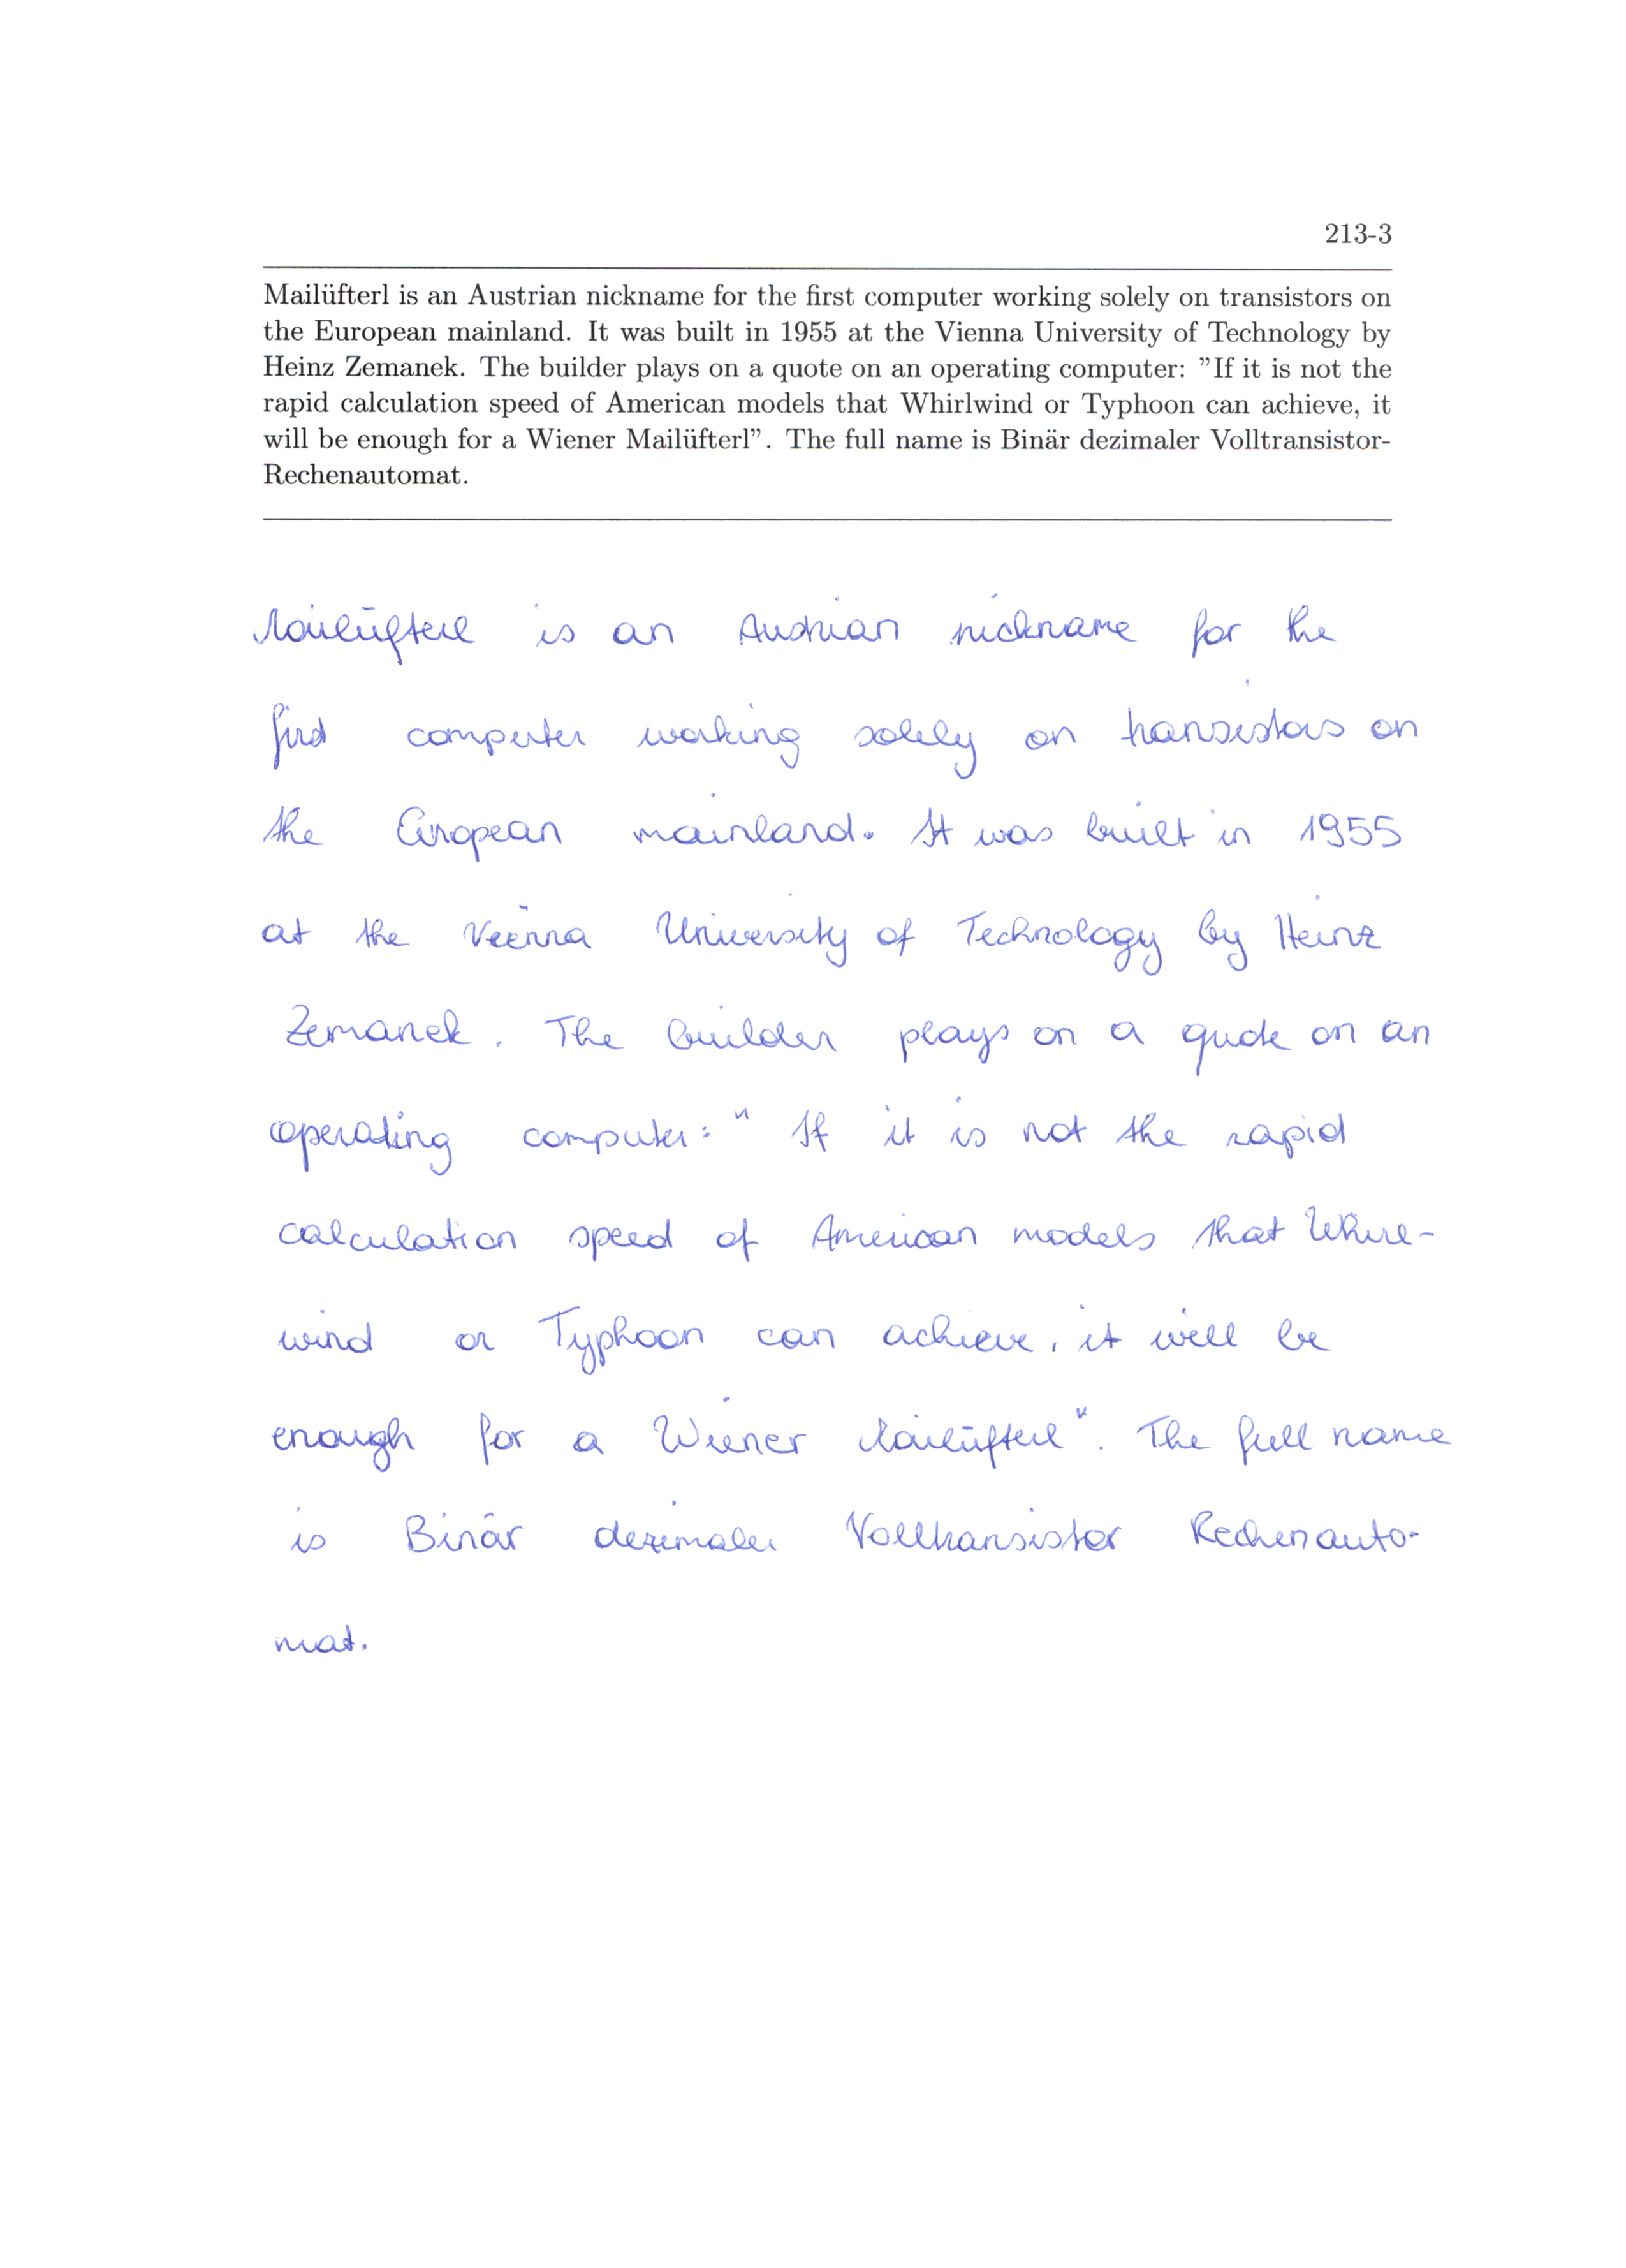 213-3
Mailüfterl is an Austrian nickname for the first computer working solely on transistors on
the European mainland. It was built in 1955 at the Vienna University of Technology by
Heinz Zemanek. The builder plays on a quote on an operating computer: ”If it is not the
rapid calculation speed of American models that Whirlwind or Typhoon can achieve, it
will be enough for a Wiener Mailüfterl”. The full name is Binär dezimaler Volltransistor-
Rechenautomat.
Mailüfterl is an Austrian nickname for the
first computer working solely on transistors on
the European mainland. It was built in 1955
at the Vienna University of Technology by Heinz
Zemanek. The builder plays on a quote on an
operating computer: " If it is not the rapid
calculation speed of American models that Whirl-
wind or Typhoon can achieve, it will be
enough for a Wiener Mailüfterl". The full name
is Binär dezimaler Volltransistor Rechenauto-
mat.